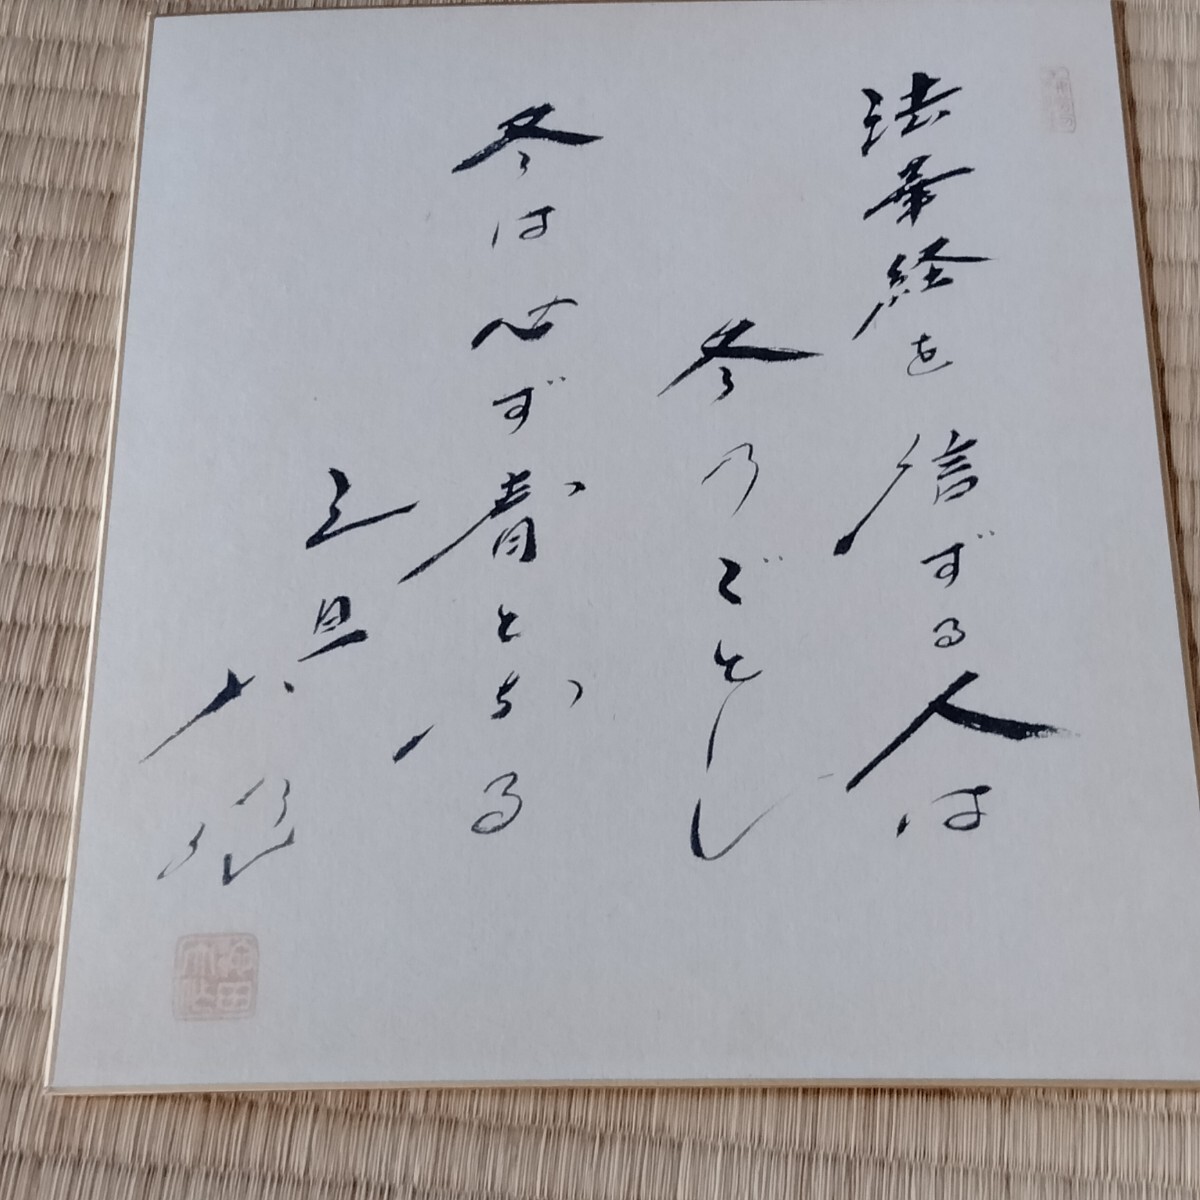 法華経を信ずる人は
冬のごとし
冬は必ず春となる